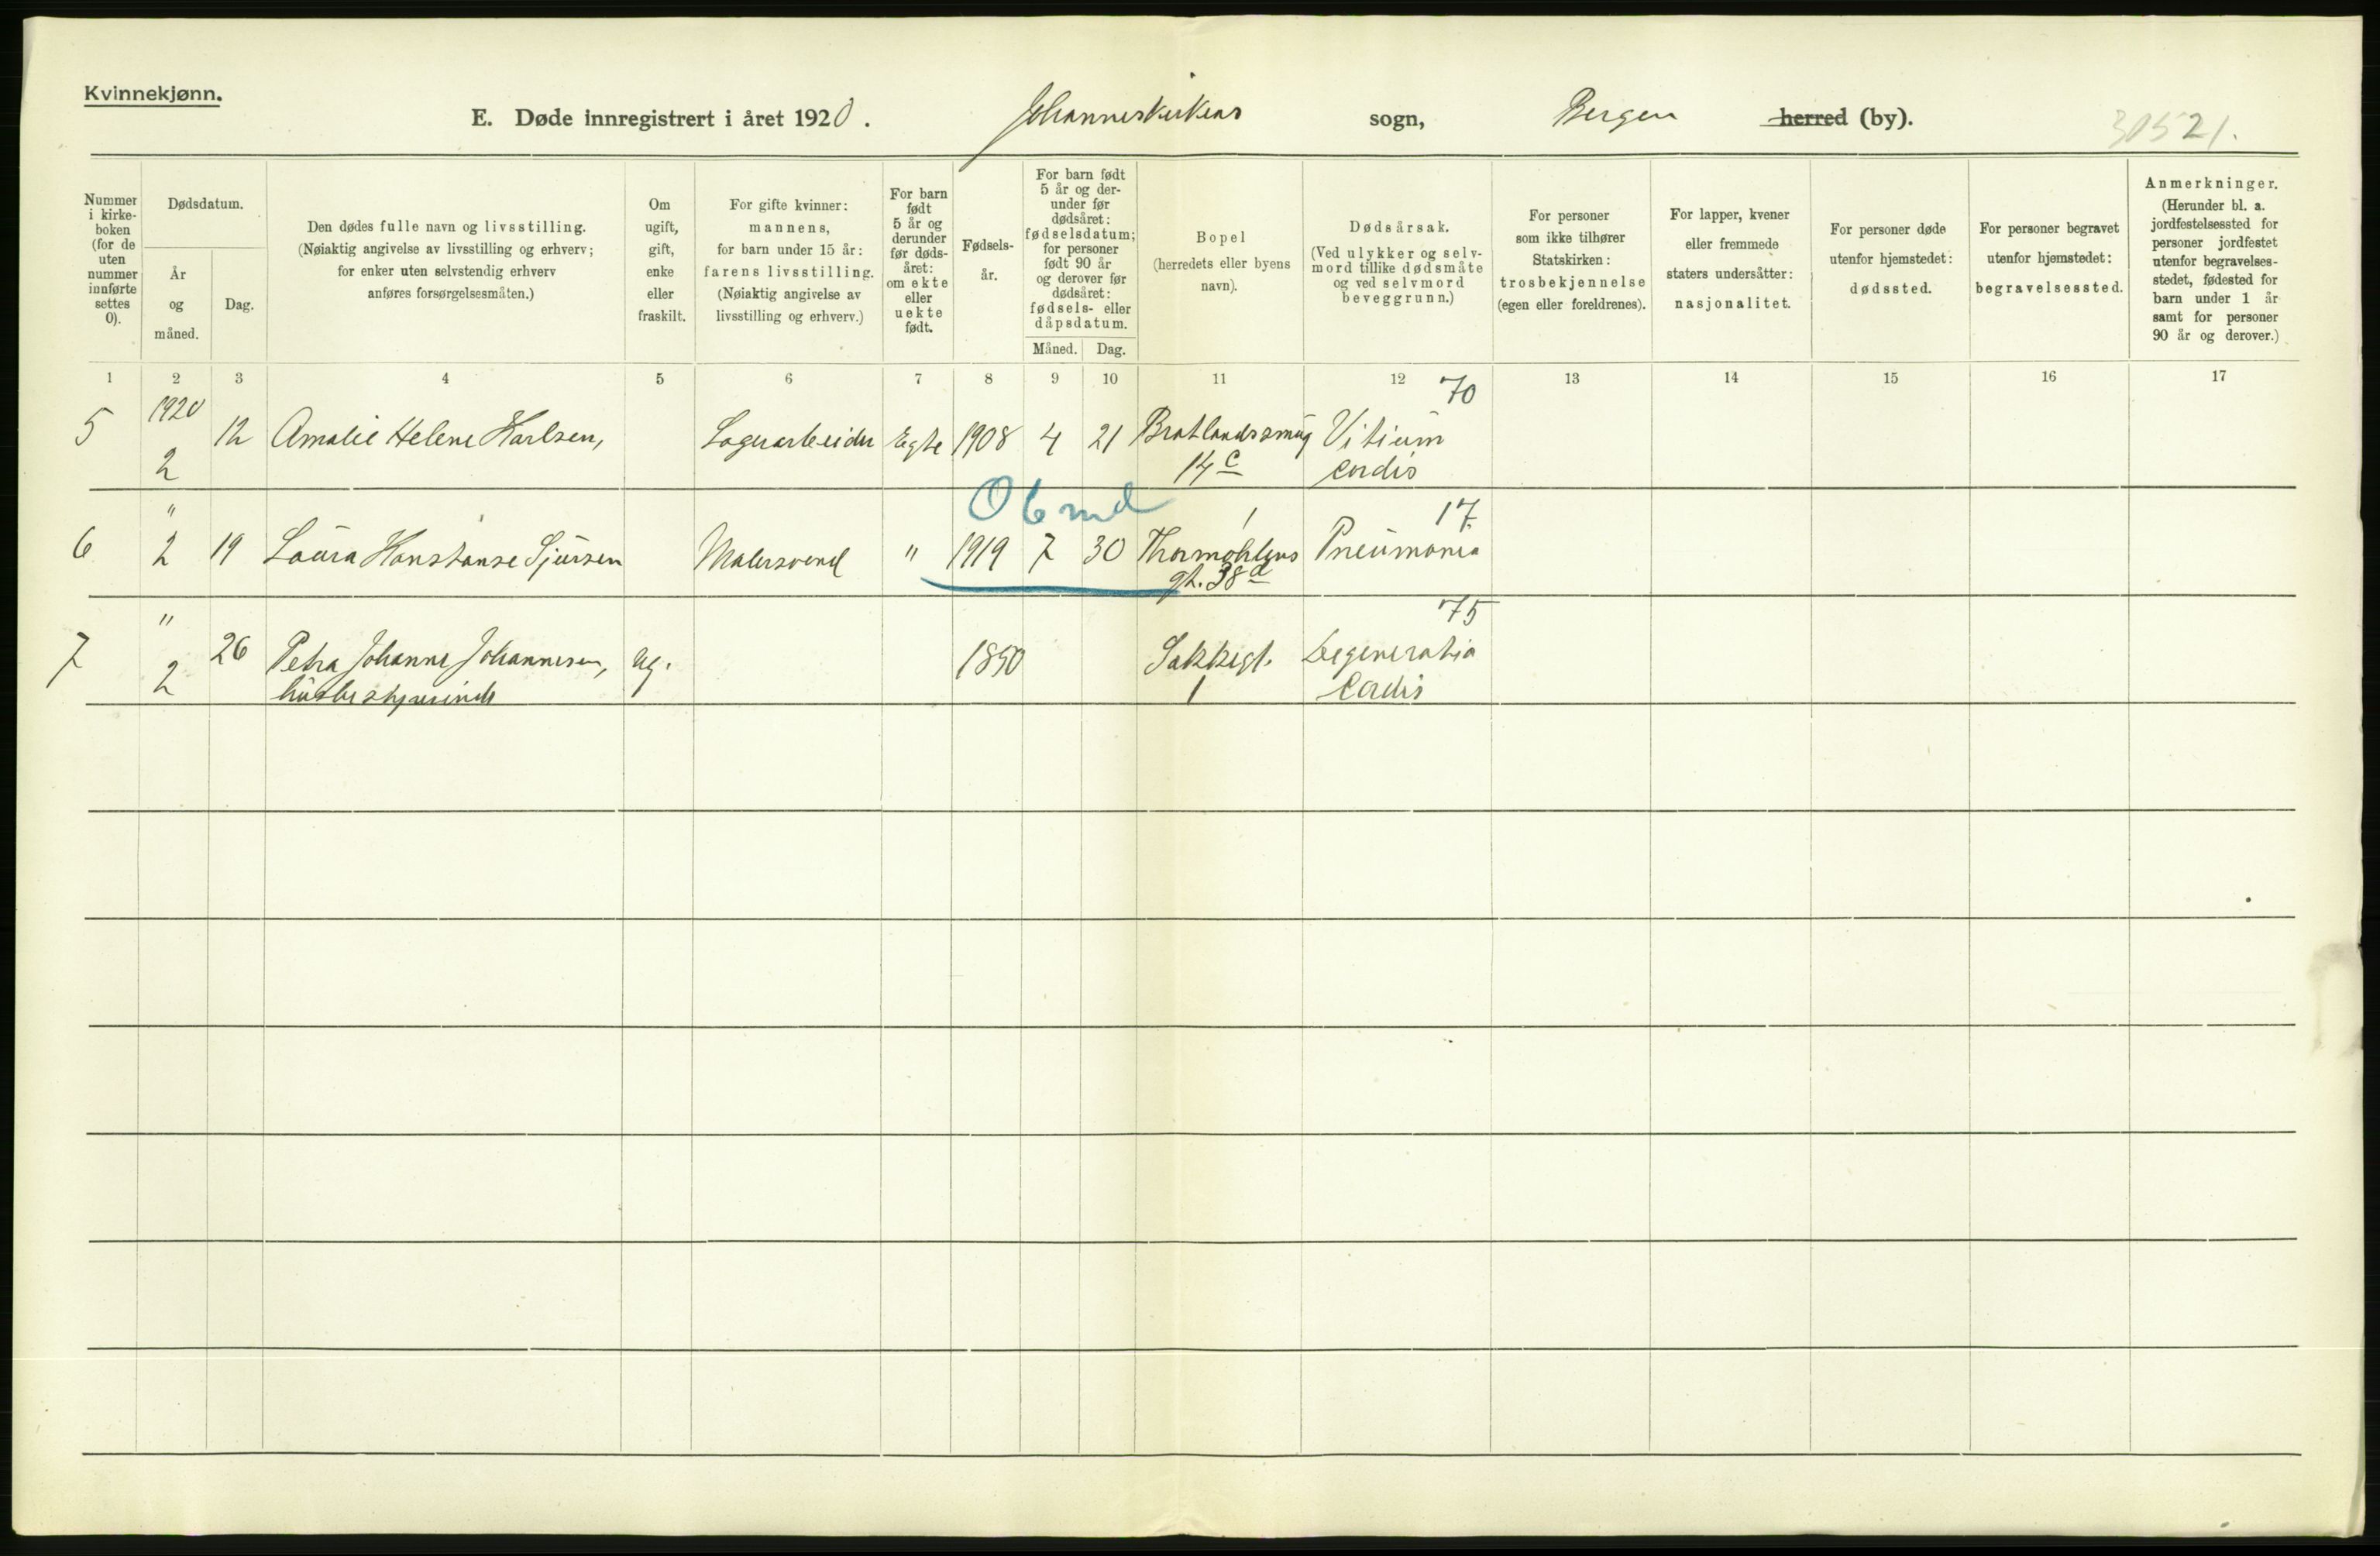 Kvinnekjønn.
E. Døde innregistrert i året 1920. Johanneskirkens sogn, Bergen herred (by). 30521.
Nummer i kirke-boken (for de uten nummer innførte settes 0).
Dødsdatum.
År og måned.
Dag.
Den dødes fulle navn og livsstilling.
(Nøiaktig angivelse av livsstilling og erhverv;
for enker uten selvstendig erhverv
anføres forsørgelsesmåten.)
Om ugift, gift, enke eller fraskilt.
For gifte kvinner:
mannens,
for barn under 15 år:
farens livsstilling.
(Nøiaktig angivelse av
livsstilling og erhverv.)
For barn født 5 år og derunder før døds-året: om ekte eller uekte født.
Fødsels-år.
For barn født
5 år og der-
under før
dødsåret:
fødselsdatum;
for personer
født 90 år
og derover før
dødsåret:
fødsels- eller
dåpsdatum.
Måned. Dag.
Bopel
(herredets eller byens
navn).
Dødsårsak.
(Ved ulykker og selv-
mord tillike dødsmåte
og ved selvmord
beveggrunn.)
For personer
som ikke tilhører
Statskirken:
trosbekjennelse
(egen eller foreldrenes).
For lapper, kvener
eller fremmede
staters undersåtter:
nasjonalitet.
For personer døde
utenfor hjemstedet:
dødssted.
For personer begravet
utenfor hjemstedet:
begravelsessted.
Anmerkninger.
(Herunder bl. a.
jordfestelsessted for
personer jordfestet
utenfor begravelses-
stedet, fødested for
barn under 1 år
samt for personer
90 år og derover.)
1 2 3 4 5 6 7 8 9 10 11 12 13 14 15 16 17
70
1920
5 2 12 Amalie Helene Karlsen, Lagerarbeider Egte 1908 4 21 Bratlandssmug Vitium
14c cordis
0 6 md
" 1 17
6 2 19 Laura Konstanse Sjursen Malersvend " 1919 7 30 Thormøhlens Pneumonia
gt. 38d
" 75
7 2 26 Petra Johanne Johannesen, ug. 1850 Sakkegt. Degeneratio
husbestyrerinde 1 Cordis